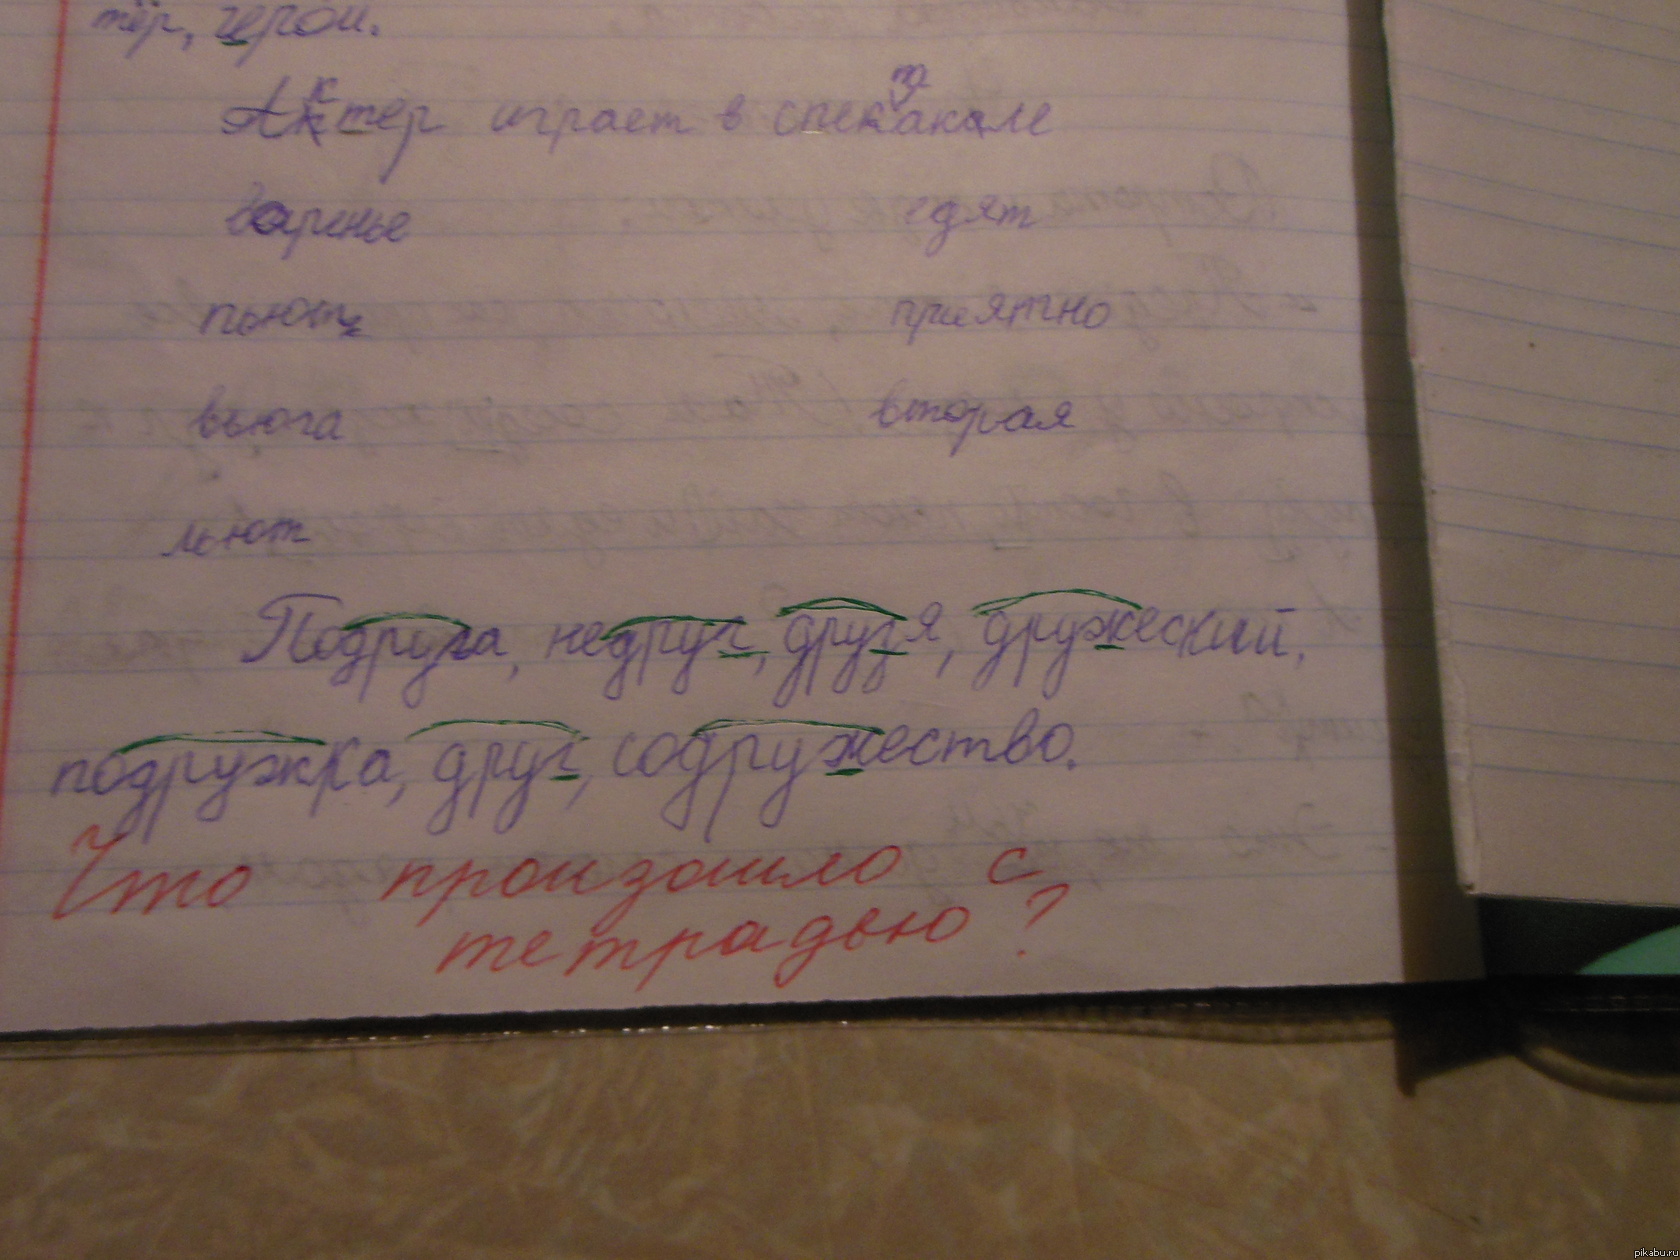 тёр, герой.
Актер играет в спектакале
варенье едят
пьют приятно
вьюга вторая
льют
Подруга, недруг, друзя, дружеский,
подружка, друг, содружество.
Что произошло с
тетрадью?
pikabu.ru